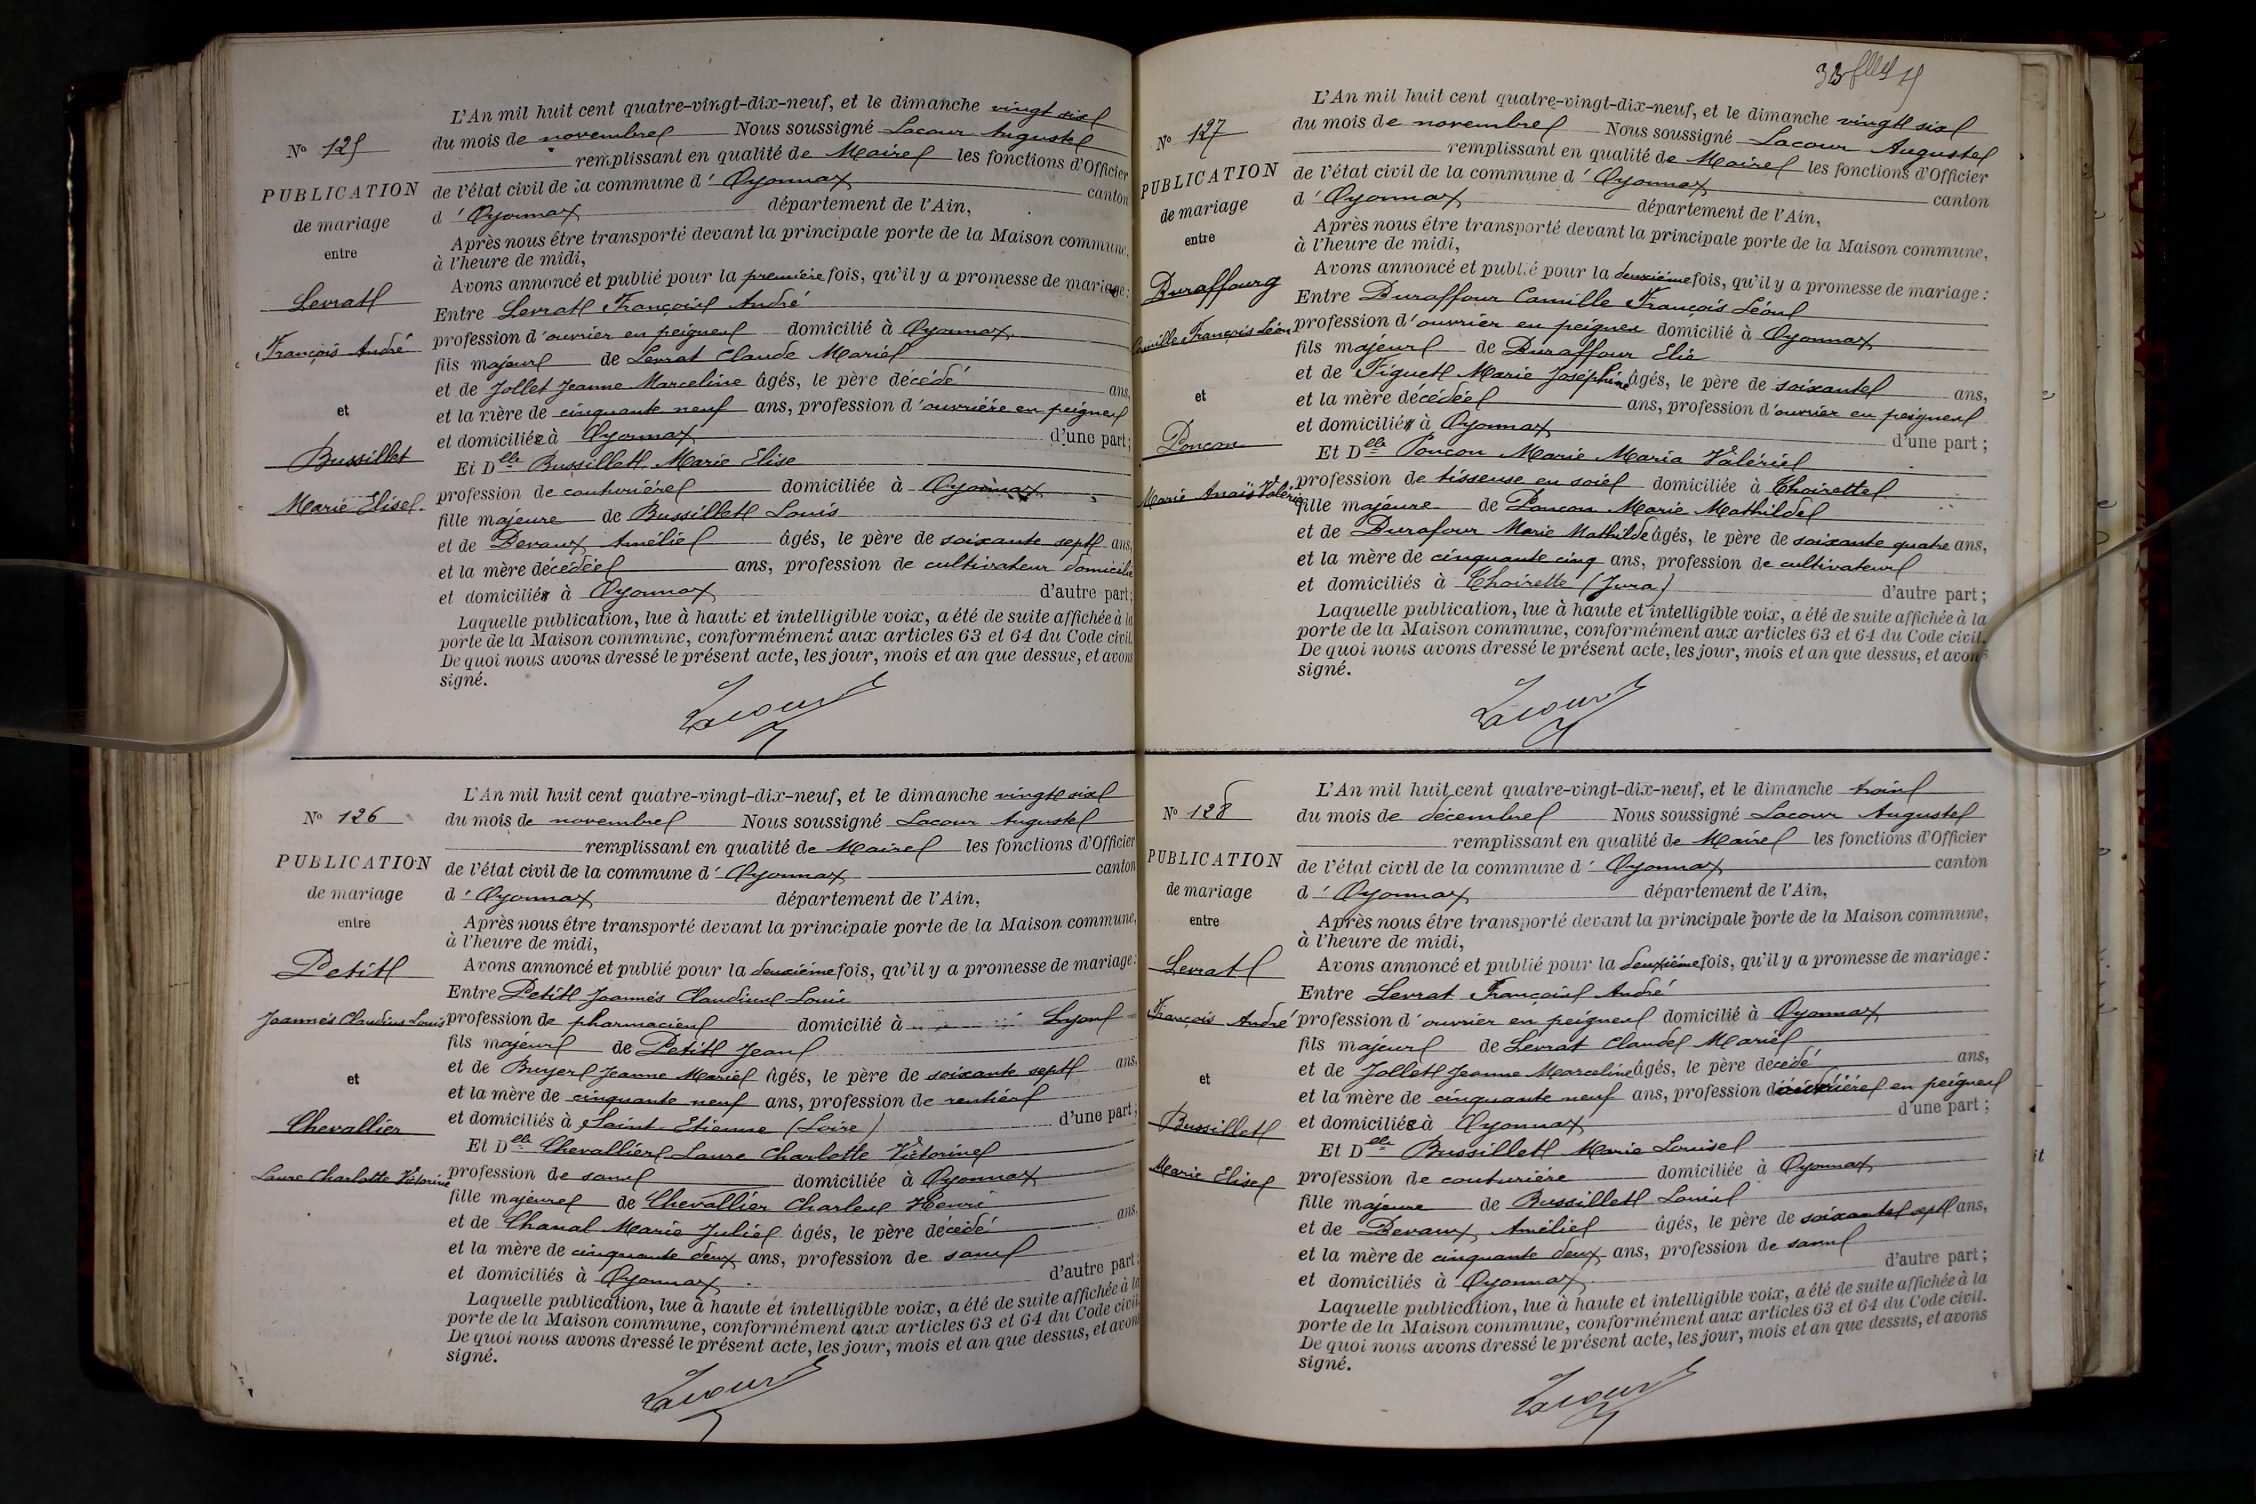 L'An mil huit cent quatre-vingt-dix-neuf, et le dimanche vingt six
N° 125
du mois de novembre Nous soussigné Lacour Auguste
remplissant en qualité de Maire les fonctions d'Officier
PUBLICATION
de l'état civil de la commune d' Oyonnax canton
de mariage
d' Oyonnax département de l'Ain,
entre
Après nous être transporté devant la principale porte de la Maison commune,
à l'heure de midi,
Avons annoncé et publié pour la première fois, qu'il y a promesse de mariage :
Levrat
Entre Levrat François André
François André
profession d'ouvrier en peignes domicilié à Oyonnax
fils majeur de Levrat Claude Marie
et de Jollet Jeanne Marceline âgés, le père décédé ans,
et
et la mère de cinquante neuf ans, profession d'ouvrière en peignes
et domiciliée à Oyonnax d'une part ;
Bussillet
Et Delle Bussillet Marie Elise
Marie Elise.
profession de couturière domiciliée à Oyonnax
fille majeure de Bussillet Louis
et de Devaux Amélie âgés, le père de soixante sept ans,
et la mère décédée ans, profession de cultivateur domicilié
et domiciliés à Oyonnax d'autre part ;
Laquelle publication, lue à haute et intelligible voix, a été de suite affichée à la
porte de la Maison commune, conformément aux articles 63 et 64 du Code civil.
De quoi nous avons dressé le présent acte, les jour, mois et an que dessus, et avons
signé.
Lacour
L'An mil huit cent quatre-vingt-dix-neuf, et le dimanche vingt six
N° 126
du mois de novembre Nous soussigné Lacour Auguste
remplissant en qualité de Maire les fonctions d'Officier
PUBLICATION
de l'état civil de la commune d' Oyonnax canton
de mariage
d' Oyonnax département de l'Ain,
entre
Après nous être transporté devant la principale porte de la Maison commune,
à l'heure de midi,
Petit
Avons annoncé et publié pour la deuxième fois, qu'il y a promesse de mariage :
Entre Petit Joannès Claudius Louis
Joannès Claudius Louis
profession de pharmacien domicilié à Lyon
fils majeur de Petit Jean
et de Buyer Jeanne Marie âgés, le père de soixante sept ans,
et
et la mère de cinquante neuf ans, profession de rentiers
et domiciliés à Saint-Etienne (Loire) d'une part ;
Chevallier
Et Delle Chevallier Laure Charlotte Victorine
Laure Charlotte Victorine
profession de sans domiciliée à Oyonnax
fille majeure de Chevallier Charles Henri
et de Chanal Marie Julie âgés, le père décédé ans,
et la mère de cinquante deux ans, profession de sans
et domiciliés à Oyonnax d'autre part ;
Laquelle publication, lue à haute et intelligible voix, a été de suite affichée à la
porte de la Maison commune, conformément aux articles 63 et 64 du Code civil.
De quoi nous avons dressé le présent acte, les jour, mois et an que dessus, et avons
signé.
Lacour
L'An mil huit cent quatre-vingt-dix-neuf, et le dimanche vingt six
N° 127
du mois de novembre Nous soussigné Lacour Auguste
remplissant en qualité de Maire les fonctions d'Officier
PUBLICATION
de l'état civil de la commune d' Oyonnax canton
de mariage
d' Oyonnax département de l'Ain,
entre
Après nous être transporté devant la principale porte de la Maison commune,
à l'heure de midi,
Avons annoncé et publié pour la deuxième fois, qu'il y a promesse de mariage :
Duraffourg
Entre Duraffour Camille François Léon
Camille François Léon
profession d'ouvrier en peignes domicilié à Oyonnax
fils majeur de Duraffour Elie
et de Figuet Marie Joséphine âgés, le père de soixante ans,
et
et la mère décédée ans, profession d'ouvrier en peignes
et domiciliés à Oyonnax d'une part ;
Ponçon
Et Delle Ponçon Marie Maria Valérie
Marie Anaïs Valérie
profession de tisseuse en soie domiciliée à Thoirette
fille majeure de Ponçon Marie Mathilde
et de Durafour Marie Mathilde âgés, le père de soixante quatre ans,
et la mère de cinquante cinq ans, profession de cultivateur
et domiciliés à Thoirette (Jura) d'autre part ;
Laquelle publication, lue à haute et intelligible voix, a été de suite affichée à la
porte de la Maison commune, conformément aux articles 63 et 64 du Code civil.
De quoi nous avons dressé le présent acte, les jour, mois et an que dessus, et avons
signé.
Lacour
L'An mil huit cent quatre-vingt-dix-neuf, et le dimanche trois
N° 128
du mois de décembre Nous soussigné Lacour Auguste
remplissant en qualité de Maire les fonctions d'Officier
PUBLICATION
de l'état civil de la commune d' Oyonnax canton
de mariage
d' Oyonnax département de l'Ain,
entre
Après nous être transporté devant la principale porte de la Maison commune,
à l'heure de midi,
Levrat
Avons annoncé et publié pour la deuxième fois, qu'il y a promesse de mariage :
Entre Levrat François André
François André
profession d'ouvrier en peignes domicilié à Oyonnax
fils majeur de Levrat Claude Marie
et de Jollet Jeanne Marceline âgés, le père décédé ans,
et
et la mère de cinquante neuf ans, profession d'ouvrière en peignes
et domiciliée à Oyonnax d'une part ;
Bussillet
Et Delle Bussillet Marie Louise
Marie Elise
profession de couturière domiciliée à Oyonnax
fille majeure de Bussillet Louis
et de Devaux Amélie âgés, le père de soixante sept ans,
et la mère de cinquante deux ans, profession de sans
et domiciliés à Oyonnax d'autre part ;
Laquelle publication, lue à haute et intelligible voix, a été de suite affichée à la
porte de la Maison commune, conformément aux articles 63 et 64 du Code civil.
De quoi nous avons dressé le présent acte, les jour, mois et an que dessus, et avons
signé.
Lacour